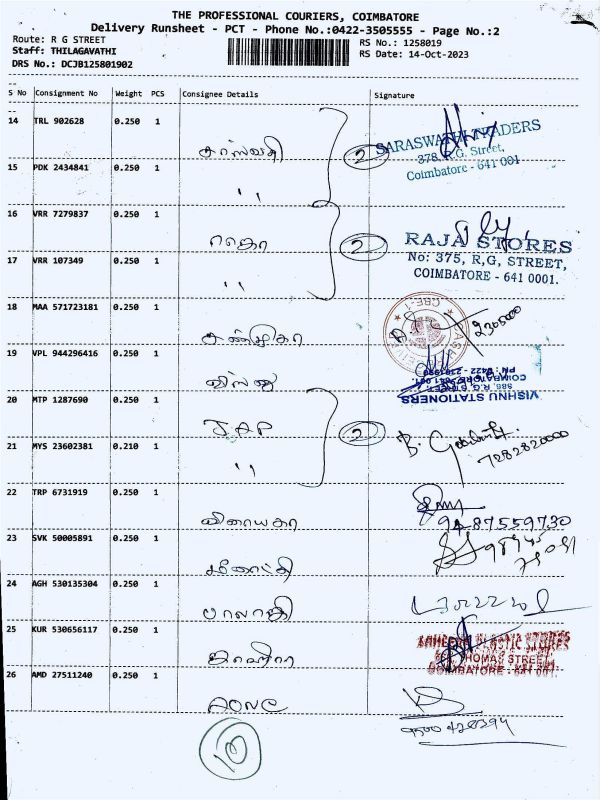 THE PROFESSIONAL COURIERS, COIMBATORE
Delivery Runsheet - PCT - Phone No.:0422-3505555 - Page No.:2
Route: R G STREET
Staff: THILAGAVATHI
DRS No.: DCJB125801902
RS No.: 1258019
RS Date: 14-Oct-2023
S No Consignment No Weight PCS Consignee Details Signature
14 TRL 902628 0.250 1 சரஸ்வதி 2 SARASWATHI TRADERS
378, R.G. Street,
Coimbatore - 641 001
15 PDK 2434841 0.250 1 ''
16 VRR 7279837 0.250 1 ராஜா 2 RAJA STORES
No: 375, R,G, STREET,
COIMBATORE - 641 0001.
17 VRR 107349 0.250 1 ''
18 MAA 571723181 0.250 1
19 VPL 944296416 0.250 1 விஷ்ணு
VISHNU STATIONERS
20 MTP 1287690 0.250 1 JAP 2
21 MYS 23602381 0.210 1 ''
7282820000
22 TRP 6731919 0.250 1 விநாயகா
9487559730
23 SVK 50005891 0.250 1 மீனாட்சி
24 AGH 530135304 0.250 1 பாலாஜி
25 KUR 530656117 0.250 1 PLASTIC STORES
THOMAS STREET
COIMBATORE - 641 001.
26 AMD 27511240 0.250 1
10